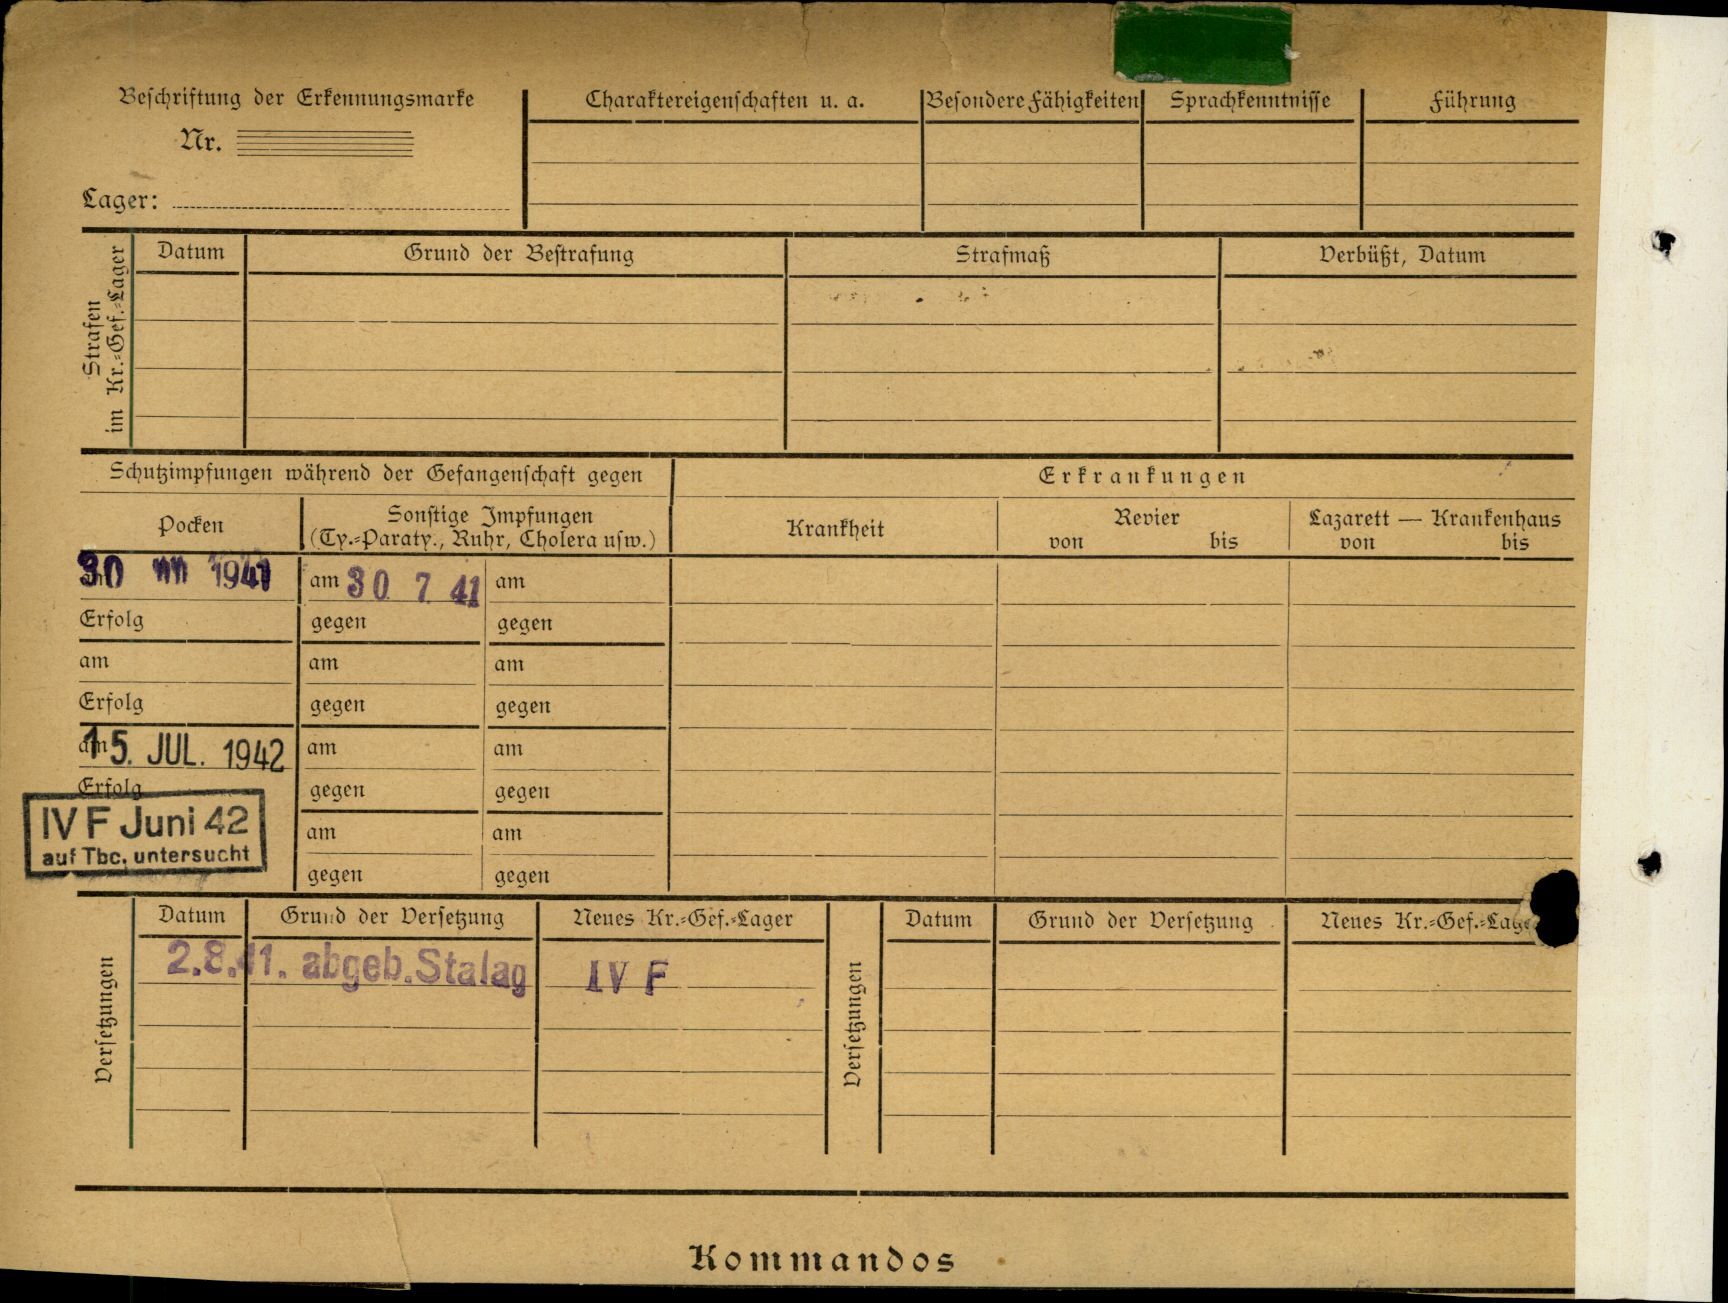 Beschriftung der Erkennungsmarke
Nr.
Lager:
Charaktereigenschaften u. a.
Besondere Fähigkeiten
Sprachkenntnisse
Führung
Strafen
im Kr.=Gef.=Lager
Datum
Grund der Bestrafung
Strafmaß
Verbüßt, Datum
Schutzimpfungen während der Gefangenschaft gegen
Erkrankungen
Pocken
Sonstige Impfungen
(Ty.=Paraty., Ruhr, Cholera usw.)
Krankheit
Revier
von bis
Lazarett — Krankenhaus
von bis
30 1941
am 30 7 41 am
Erfolg gegen gegen
am am am
Erfolg gegen gegen
am 15. JUL. 1942 am am
Erfolg gegen gegen
IV F Juni 42
auf Tbc. untersucht
am am
gegen gegen
Versetzungen
Datum Grund der Versetzung Neues Kr.=Gef.=Lager
2.8.41. abgeb. Stalag IV F
Versetzungen
Datum Grund der Versetzung Neues Kr.=Gef.=Lager
Kommandos